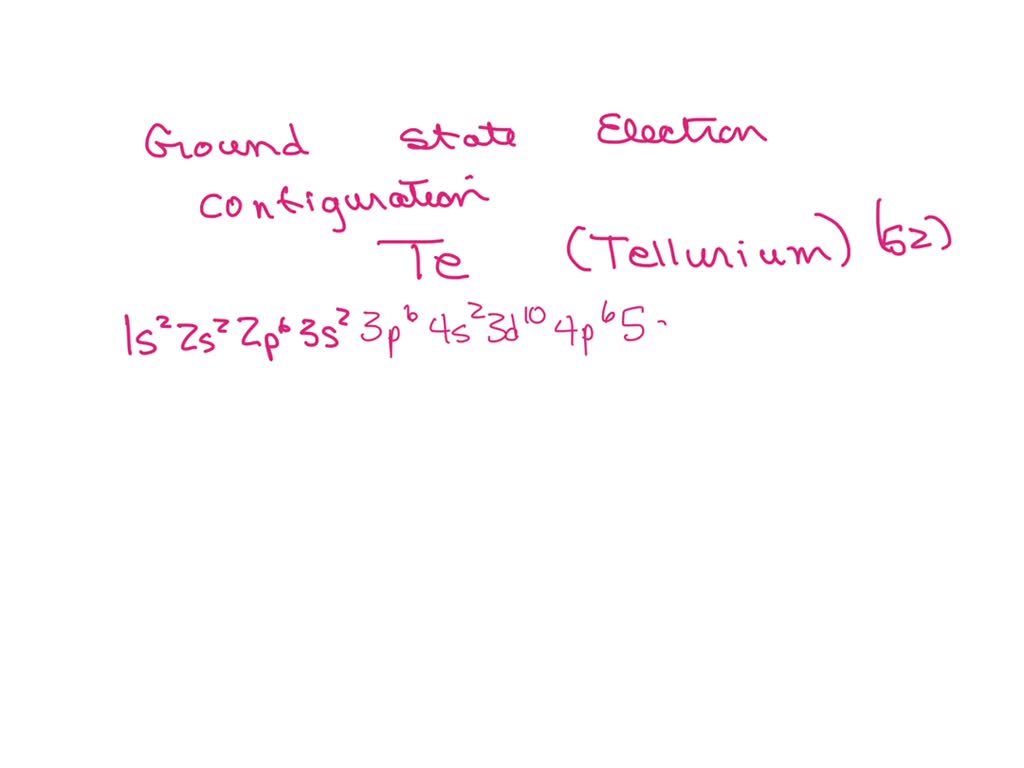 Ground state Electron
configuration
Te (Tellurium) (52)
1s² 2s² 2p⁶ 3s² 3p⁶ 4s² 3d¹⁰ 4p⁶ 5